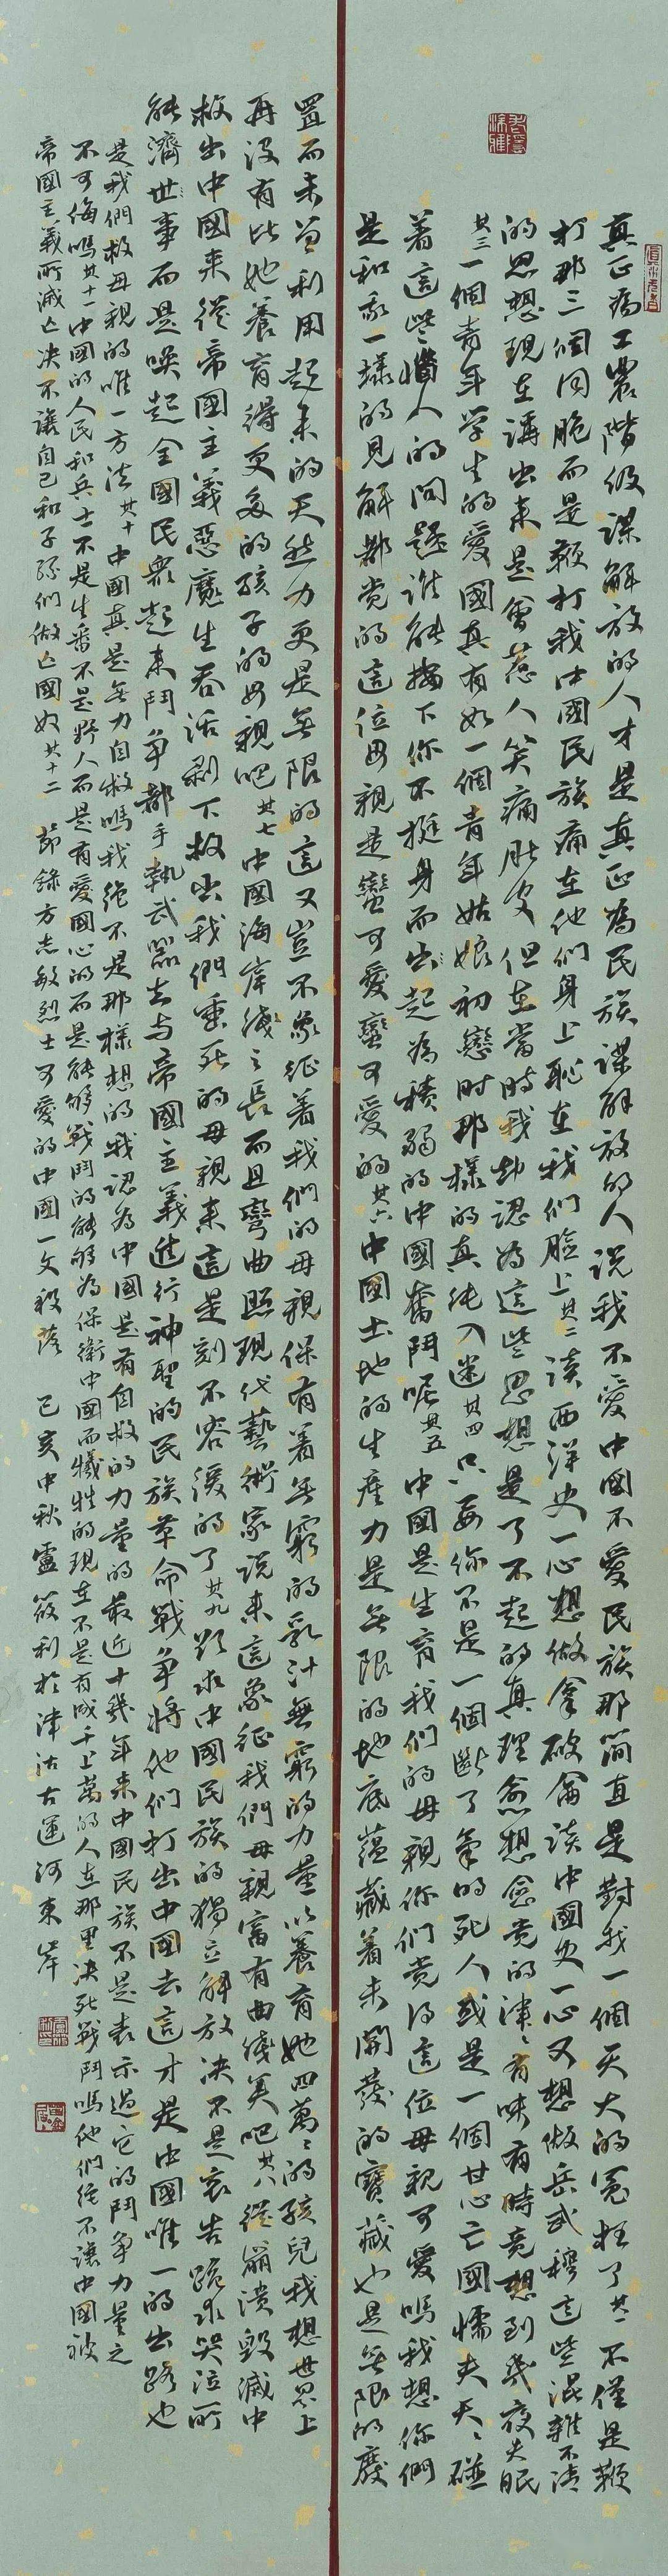 真正為工農階級謀解放的人才是真正為民族謀解放的人说我不愛中國不愛民族那简直是對我一個天大的冤枉了其一不僅是鞭
打那三個同胞而是鞭打我中國民族痛在他們身上恥在我们脸上其二读西洋史一心想做拿破侖读中國史一心又想做岳武穆這些混雜不清
的思想現在講出来是會惹人笑痛肚皮但在當時我却認為這些思想是了不起的真理愈想愈觉的津津有味有時竟想到幾夜失眠
其三一個青年学生的愛國真有如一個青年姑娘初戀时那樣的真纯入迷其四只要你不是一個断了氣的死人或是一個甘心亡國懦夫天天碰
着這些惱人的问题谁能按下你不挺身而出起為積弱的中國奮鬥呢其五中國是生育我们的母親你们觉得這位母親可愛嗎我想你們
是和我一樣的見解都觉的這位母親是蠻可愛蠻可愛的其六中國土地的生産力是無限的地底蕴藏着未開發的寶藏也是無限的廢
置而未曾利用起来的天然力更是無限的這又豈不象征着我們的母親保有着無窮的乳汁無窮的力量以養育她四萬萬的孩兒我想世界上
再没有比她養育得更多的孩子的母親吧其七中國海岸线之長而且彎曲照現代藝術家说来這象征我們母親富有曲线美吧其八從崩潰毁滅中
救出中國来從帝國主義惡魔生吞活剥下救出我們垂死的母親来這是刻不容缓的了其九欺求中國民族的獨立解放决不是哀告跪求哭泣所
能濟世事而是唤起全國民眾起来鬥争都手執武器去与帝國主義進行神聖的民族革命戰争將他们打出中國去這才是中國唯一的出路也
是我們救母親的唯一方法其十中國真是無力自救嗎我绝不是那樣想的我認為中國是有自救的力量的最近十幾年来中國民族不是表示過它的鬥争力量之
不可侮嗎其十一中國的人民和兵士不是生番不是野人而是有愛國心的而是能够戰鬥的能够為保衛中國而犧牲的現在不是有成千上萬的人在那里决死戰鬥嗎他們绝不讓中國被
帝國主義所滅亡决不讓自己和子孫們做亡國奴其十二節錄方志敏烈士可愛的中國一文段落己亥中秋盧筱利於津沽古運河東岸